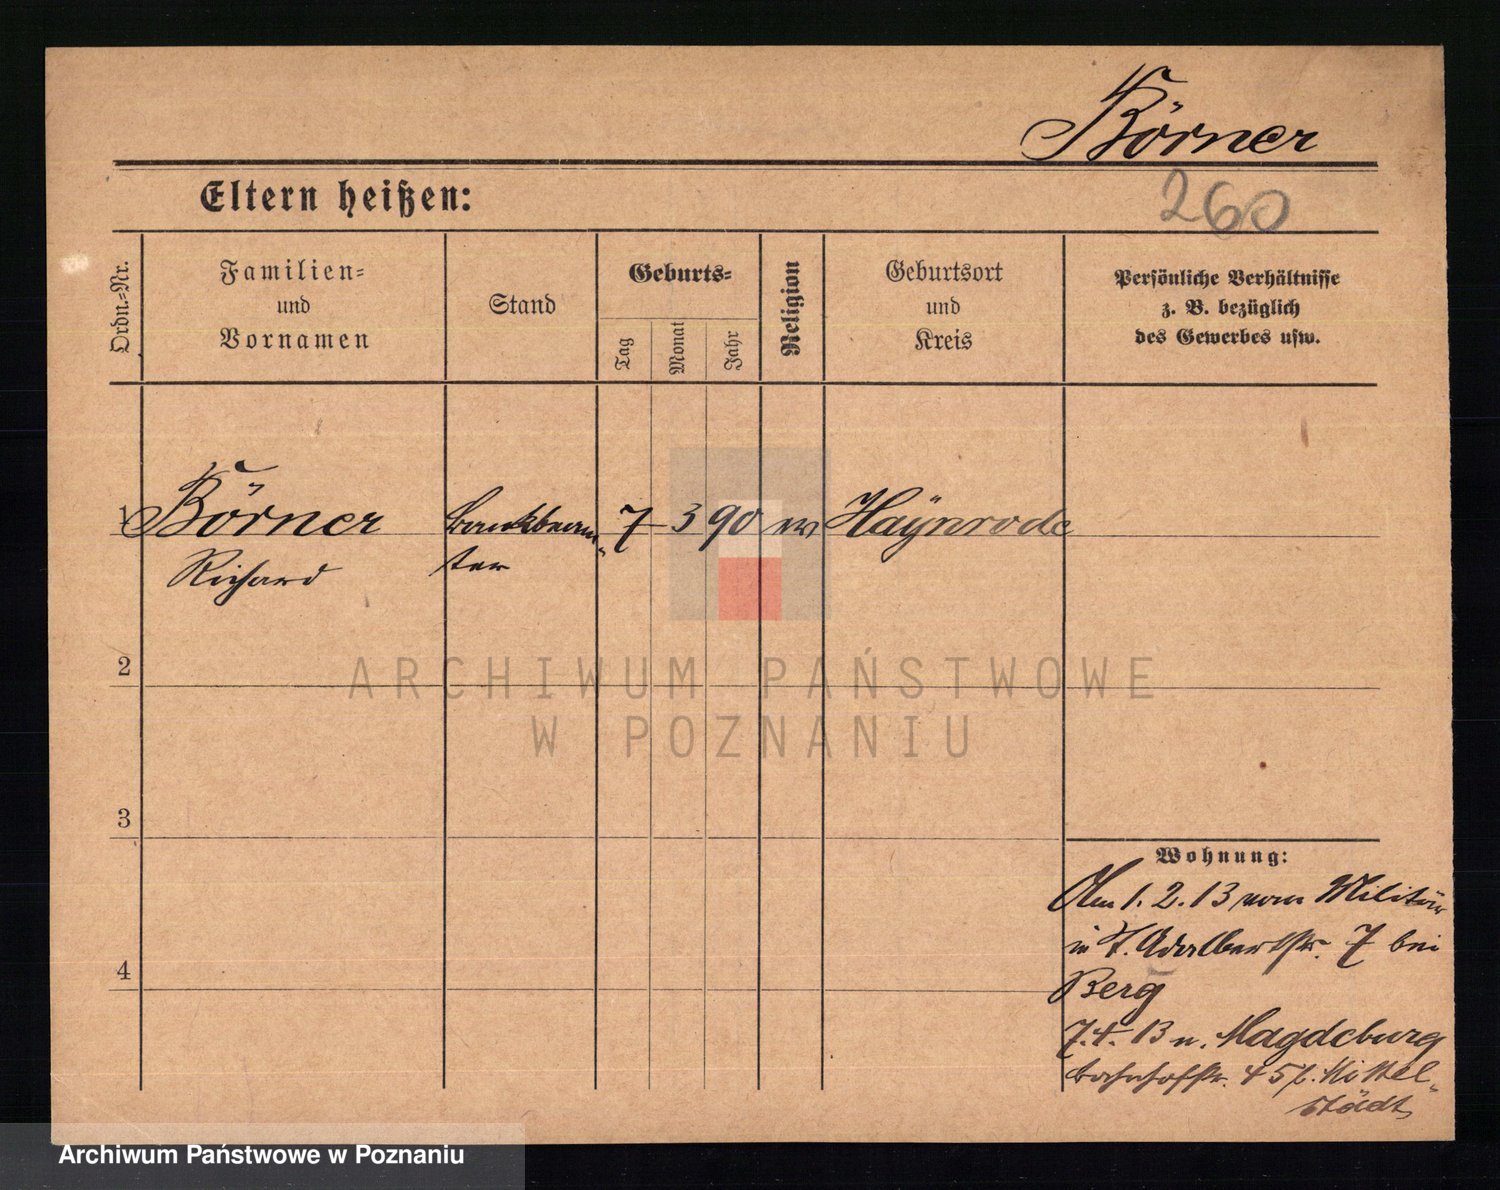 Börner
260
Eltern heißen:
Ordn.-Nr.
Familien-
und
Vornamen
Stand
Geburts-
Tag
Monat
Jahr
Religion
Geburtsort
und
Kreis
Persönliche Verhältnisse
z. B. bezüglich
des Gewerbes usw.
1 Börner Bankbeam- 7 3 90 ev Haynrode
Richard ter
2
3
4
Wohnung:
Am 1. 2. 13 vom Militär
in Adalbertstr. 7 bei
Berg
7. 4. 13 n. Magdeburg
Bahnhofstr. 45 b. Kittel-
städt
ARCHIWUM PAŃSTWOWE
W POZNANIU
Archiwum Państwowe w Poznaniu